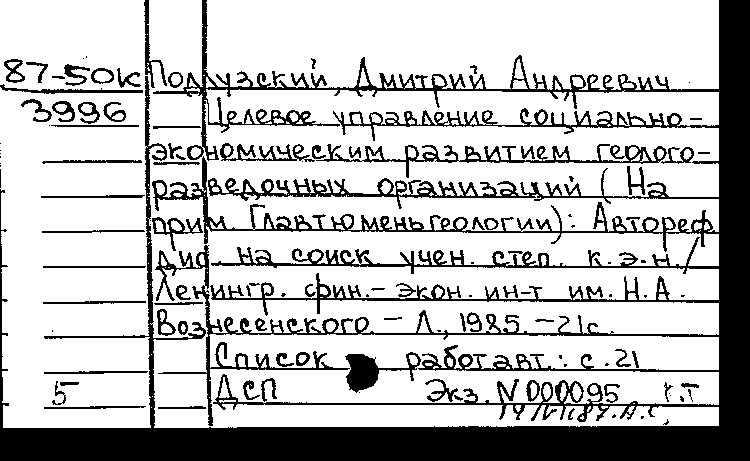 87-50к Подлузский, Дмитрий Андреевич
3996 Целевое управление социально-
экономическим развитием геолого-
разведочных организаций (На
прим. Главтюменьгеологии): Автореф
дис. на соиск. учен. степ. к.э.н./
Ленингр. фин.-экон. ин-т им. Н.А.
Вознесенского. - Л., 1985. - 21с.
Список работ авт.: с. 21
5 ДСП Экз. N 000095 т.т